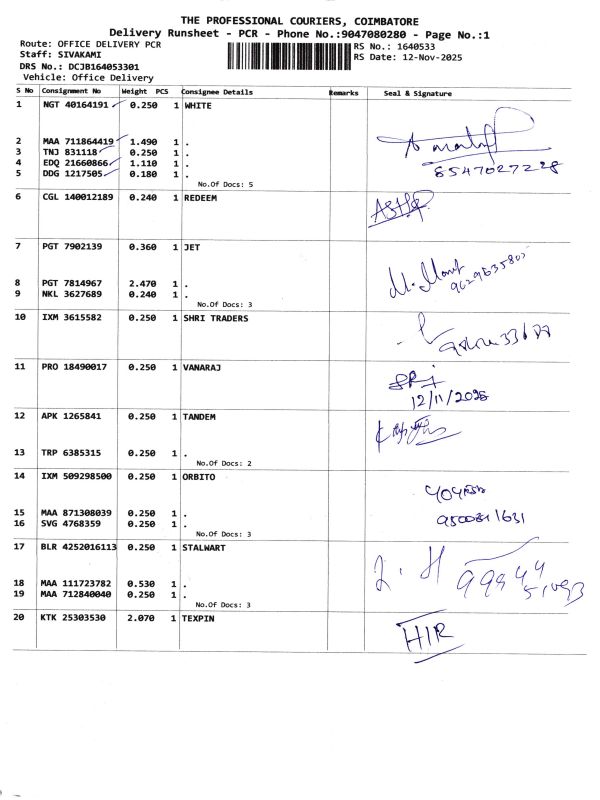 THE PROFESSIONAL COURIERS, COIMBATORE
Delivery Runsheet - PCR - Phone No.:9047080280 - Page No.:1
Route: OFFICE DELIVERY PCR
Staff: SIVAKAMI
DRS No.: DCJB164053301
Vehicle: Office Delivery
RS No.: 1640533
RS Date: 12-Nov-2025
S No Consignment No Weight PCS Consignee Details Remarks Seal & Signature
1 NGT 40164191 0.250 1 WHITE
2 MAA 711864419 1.490 1 .
3 TNJ 831118 0.250 1 .
4 EDQ 21660866 1.110 1 .
5 DDG 1217505 0.180 1 .
8547027228
No.Of Docs: 5
6 CGL 140012189 0.240 1 REDEEM
7 PGT 7902139 0.360 1 JET
8 PGT 7814967 2.470 1 .
9 NKL 3627689 0.240 1 .
No.Of Docs: 3
10 IXM 3615582 0.250 1 SHRI TRADERS
11 PRO 18490017 0.250 1 VANARAJ
12/11/2025
12 APK 1265841 0.250 1 TANDEM
13 TRP 6385315 0.250 1 .
No.Of Docs: 2
14 IXM 509298500 0.250 1 ORBITO
15 MAA 871308039 0.250 1 .
16 SVG 4768359 0.250 1 .
No.Of Docs: 3
17 BLR 4252016113 0.250 1 STALWART
18 MAA 111723782 0.530 1 .
19 MAA 712840040 0.250 1 .
No.Of Docs: 3
20 KTK 25303530 2.070 1 TEXPIN